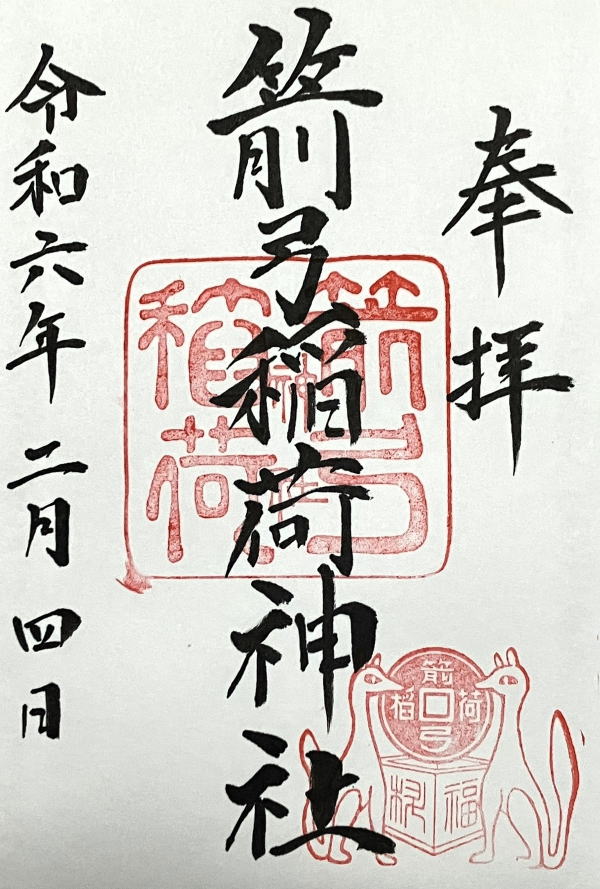 奉拝
箭弓稲荷神社
令和六年二月四日
箭弓
稲荷
神社
箭弓稲荷
福